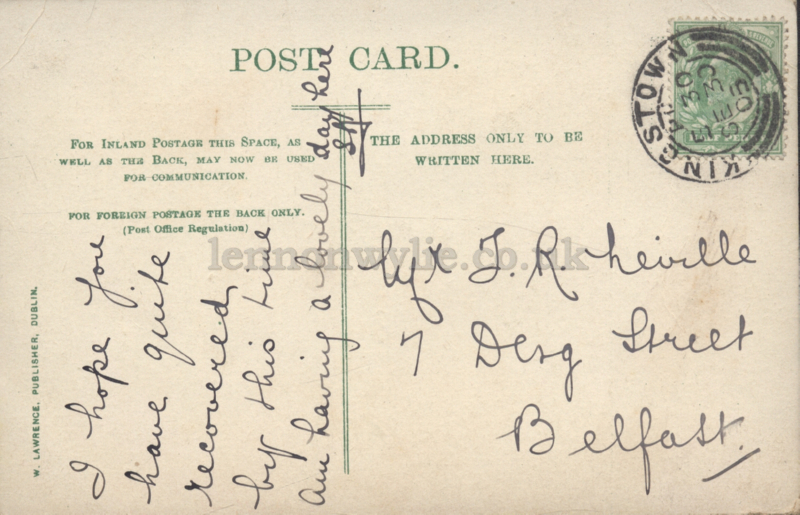 POST CARD.
FOR INLAND POSTAGE THIS SPACE, AS
WELL AS THE BACK, MAY NOW BE USED
FOR COMMUNICATION.
FOR FOREIGN POSTAGE THE BACK ONLY.
(Post Office Regulation)
THE ADDRESS ONLY TO BE
WRITTEN HERE.
W. LAWRENCE, PUBLISHER, DUBLIN.
I hope you
have quite
recovered
by this time
am having a lovely day here
J. R. Neville
7 Street
Belfast.
KINGSTOWN
30
SE 30
05
lennonwylie.co.uk